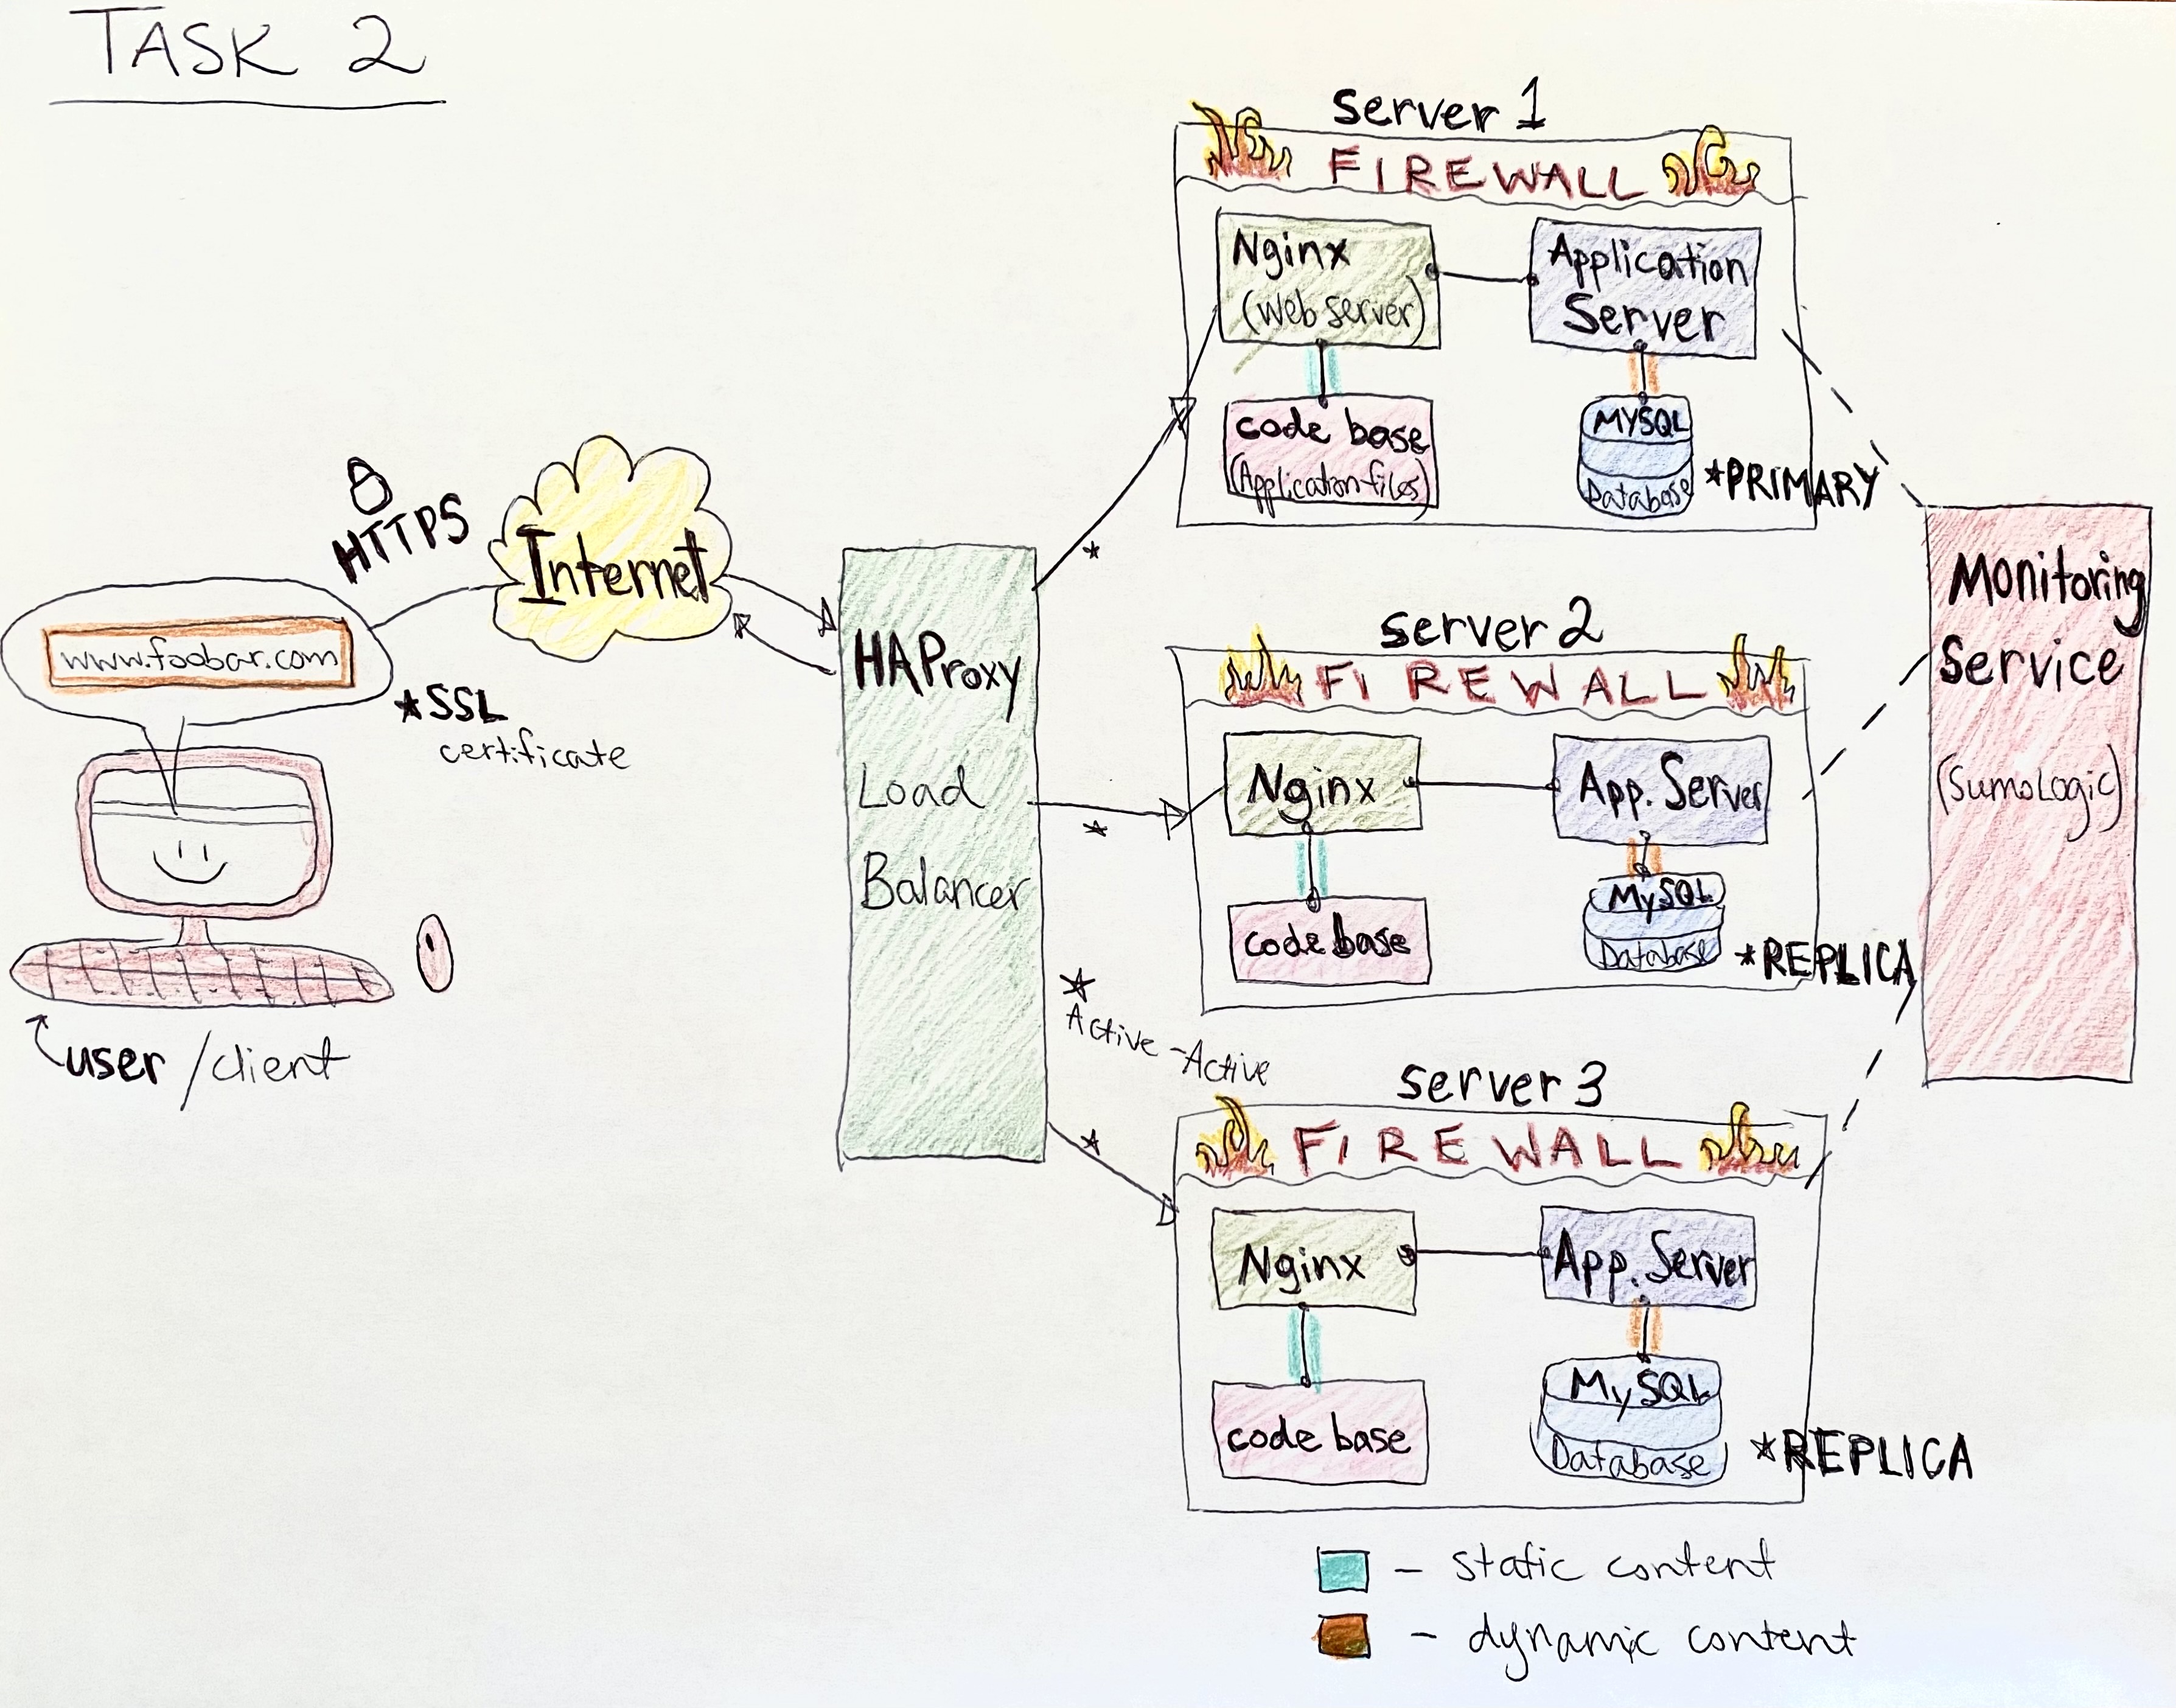 TASK 2
HTTPS
www.foobar.com
*SSL
certificate
user / client
Internet
HAProxy
Load
Balancer
*
*
*
* Active - Active
server 1
FIREWALL
Nginx
(Web server)
Application
Server
code base
(Application files)
MYSQL
Database
*PRIMARY
server 2
FIREWALL
Nginx
App. Server
code base
MySQL
Database
*REPLICA
server 3
FIREWALL
Nginx
App. Server
code base
MySQL
Database
*REPLICA
Monitoring
Service
(SumoLogic)
- static content
- dynamic content